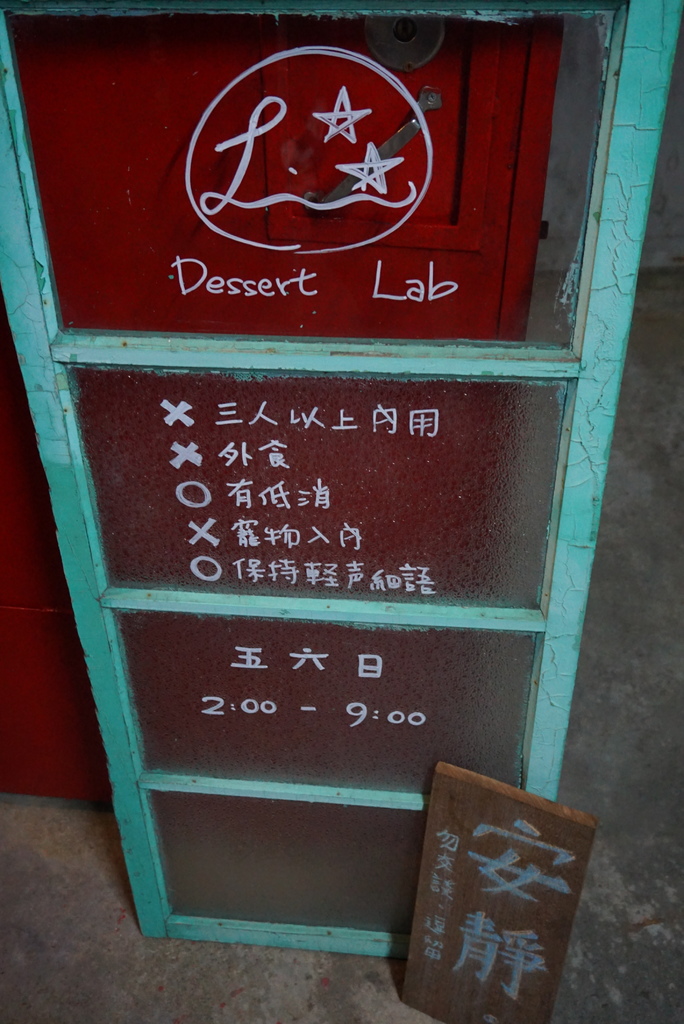 Li
Dessert Lab
× 三人以上內用
× 外食
○ 有低消
× 寵物入內
○ 保持軽声細語
五 六 日
2:00 - 9:00
安靜
勿交談·逗留